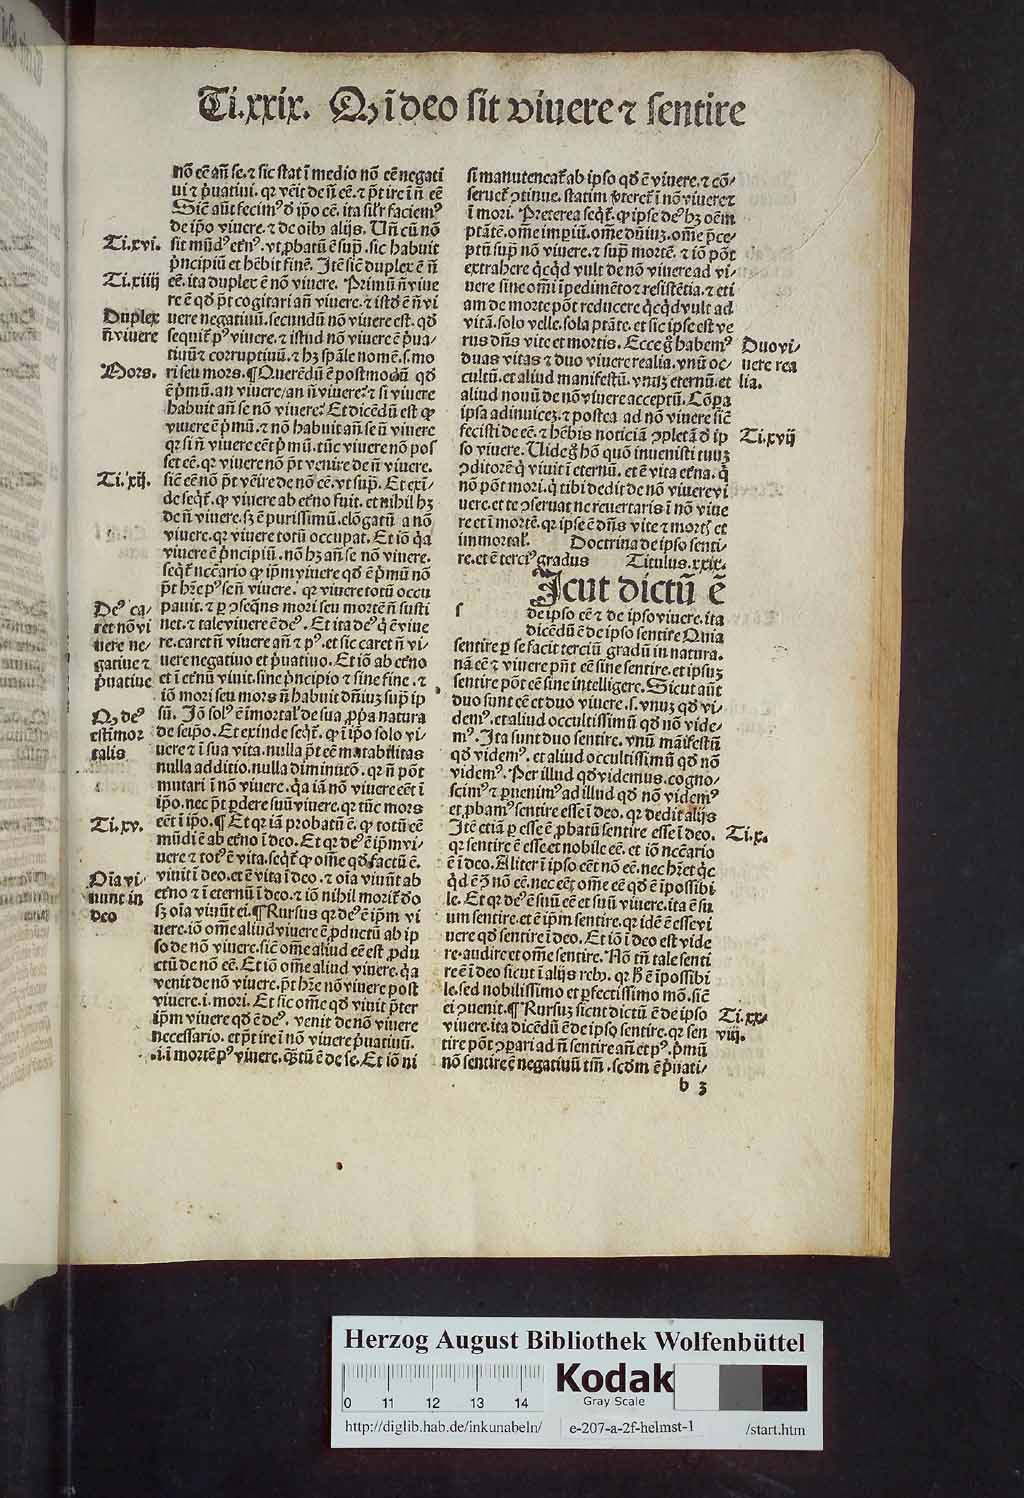 Ti.xxix. Ꝙ ī deo sit viuere ⁊ sentire
nō eē an̄ se. ⁊ sic stat ī medio nō eē negati
ui ⁊ p̄uatiui. qꝛ veīt de n̄ eē. ⁊ p̄t ire ī n̄ eē
Sic̄ aūt fecimꝰ d̄ ip̄o eē. ita sil'r faciemꝰ
de ip̄o viuere. ⁊ de oib⁹ alijs. Un̄ cū nō
Ti.xvi.
sit mūdꝰ et̄nꝰ. vt ꝓbatū ē sup̄. sic habuit
p̄ncipiū et hēbit finē. Itē sic̄ duplex ē n̄
Ti.xiiij
eē. ita duplex ē nō viuere. Primū n̄ viue
re ē qd̄ p̄t cogitari an̄ viuere. ⁊ istd̄ ē n̄ vi
Duplex
n̄ viuere
uere negatiuū. secundū nō viuere est. qd̄
sequit᷑ pꝰ viuere. ⁊ istud nō viuere ē p̄ua⸗
tiuū ⁊ corruptiuū. ⁊ hꝫ sp̄ale nomē. s. mo
Mors.
ri seu mors. ¶ Querēdū ē postmodū qd̄
ē p̄mū. an viuere/an n̄ viuere? ⁊ si viuere
habuit an̄ se nō viuere? Et dicēdū est ꝙ
viuere ē p̄mū. ⁊ nō habuit an̄ se n̄ viuere
qꝛ si n̄ viuere eēt p̄mū. tūc viuere nō pos
set eē. qꝛ viuere nō p̄t venire de n̄ viuere.
Ti.xij.
sic̄ eē nō p̄t vēire de nō eē. vt sup̄. Et exī⸗
de seqt᷑. ꝙ viuere ab et̄no fuit. et nihil hꝫ
de n̄ viuere. sꝫ ē purissimū. elōgatū a nō
viuere. qꝛ viuere totū occupat. Et iō q̄a
viuere ē p̄ncipiū. nō hꝫ an̄ se nō viuere.
seqt᷑ nc̄cario ꝙ ip̄m viuere qd̄ ē p̄mū nō
p̄t hr̄e pꝰ se n̄ viuere. qꝛ viuere totū occu
Deꝰ ca⸗
ret nō vi
uere ne⸗
gatiue ⁊
p̄uatiue
pauit. ⁊ ꝑ ꝯseq̄ns mori seu mortē n̄ susti
net. ⁊ tale viuere ē deꝰ. Et ita deꝰ q̄ ē viue
re. caret n̄ viuere an̄ ⁊ pꝰ. et sic caret n̄ vi⸗
uere negatiuo et p̄uatiuo. Et iō ab et̄no
et ī et̄nū viuit. sine p̄ncipio ⁊ sine fine. ⁊
iō mori seu mors n̄ habuit dn̄iuꝫ sup̄ ip
Ꝙ deꝰ
est īmor
talis
sū. Iō solꝰ ē īmortal' de sua ꝓp̄a natura
de seip̄o. Et exinde seqt᷑. ꝙ ī ip̄o solo vi⸗
uere ⁊ ī sua vita. nulla p̄t eē mutabilitas
nulla additio. nulla diminutō. qꝛ n̄ pōt
mutari ī nō viuere. q̄a iā nō viuere eēt ī
ip̄o. nec p̄t ꝑdere suū viuere. qꝛ tūc mors
Ti.xv.
eēt ī ip̄o. ¶ Et qꝛ iā probatū ē. ꝙ totū eē
mūdi ē ab et̄no ī deo. Et qꝛ deꝰ ē ip̄m vi⸗
uere ⁊ totꝰ ē vita. seqt᷑ ꝙ om̄e qd̄ factū ē.
Oīa vi⸗
uunt in
deo
viuit ī deo. et ē vita ī deo. ⁊ oīa viuūt ab
et̄no ⁊ ī eternū ī deo. ⁊ iō nihil morit᷑ d̄o
sꝫ oīa viuūt ei. ¶ Rursus qꝛ deꝰ ē ip̄m vi
uere. iō om̄e aliud viuere ē ꝓductū ab ip
so de nō viuere. sic̄ om̄e aliud eē est ꝓdu
ctū de nō eē. Et iō om̄e aliud viuere. q̄a
venit de nō viuere. p̄t hr̄e nō viuere post
viuere. i. mori. Et sic om̄e qd̄ viuit p̄ter
ip̄m viuere qd̄ ē deꝰ. venit de nō viuere
necessario. et p̄t ire ī nō viuere p̄uatiuū.
.i. ī mortē pꝰ viuere. q̄ꝫtū ē de se. Et iō ni
si manutencat᷑ ab ipso qd̄ ē viuere. ⁊ cō⸗
seruet᷑ ꝯtinue. statim v̄teret᷑ ī nō viuere ⁊
ī mori. Preterea seqt᷑. ꝙ ipse deꝰ hꝫ oēm
ptātē. om̄e imꝑiū. om̄e dn̄iuꝫ. om̄e p̄ce⸗
ptū sup̄ nō viuere. ⁊ sup̄ mortē. ⁊ iō pōt
extrahere q̄cqd̄ vult de nō viuere ad vi⸗
uere sine om̄i īpedimēto ⁊ resistētia. ⁊ eti
am de morte pōt reducere q̄cqd̄ vult ad
vitā. solo velle. sola ptāte. et sic ipse est ve
rus dn̄s vite et mortis. Ecce g̊ habemꝰ
Duo vi⸗
uere rea
lia.
duas vitas ⁊ duo viuere realia. vnū oc⸗
cultū. et aliud manifestū. vnuꝫ eternū. et
aliud nouū de nō viuere acceptū. Cōpa
ipsa adinuiceꝫ. ⁊ postea ad nō viuere sic̄
Ti.xvij
fecisti de eē. ⁊ hēbis noticiā ꝯpletā d̄ ip
so viuere. Uide g̊ hō quō inuenisti tuuꝫ
ꝯditorē q̄ viuit ī eternū. et ē vita et̄na. q̄
nō pōt mori. q̄ tibi dedit de nō viuere vi
uere. et te ꝯseruat ne reuertaris ī nō viue
re et ī mortē. qꝛ ipse ē dn̄s vite ⁊ mort᷑ et
immortal'. Doctrina de ipso senti⸗
re. et ē tercꝰ gradus Titulus.xxix.
s Icut dictū ē
de ipso eē ⁊ de ipso viuere. ita
dicēdū ē de ipso sentire Quia
sentire ꝑ se facit terciū gradū in natura.
nā eē ⁊ viuere pn̄t eē sine sentire. et ipsuꝫ
sentire pōt eē sine intelligere. Sicut aūt
duo sunt eē et duo viuere. s. vnuꝫ qd̄ vi⸗
demꝰ. et aliud occultissimū qd̄ nō vide⸗
mꝰ. Ita sunt duo sentire. vnū māifestū
qd̄ videmꝰ. et aliud occultissimū qd̄ nō
videmꝰ. Per illud qd̄ videmus. cogno⸗
scimꝰ ⁊ ꝑuenimꝰ ad illud qd̄ nō videmꝰ
et ꝓbamꝰ sentire esse ī deo. qꝛ dedit alijs
Ti.x.
Itē etiā ꝑ esse ē ꝓbatū sentire esse ī deo.
qꝛ sentire ē esse et nobile eē. et iō nc̄cario
ē ī deo. Aliter ī ipso eēt nō eē. nec hr̄et q̄c
q̄d ē ꝯ̄ nō eē. nec eēt om̄e eē qd̄ ē īpossibi
le. Et qꝛ deꝰ ē suū eē et suū viuere. ita ē su
um sentire. et ē ip̄m sentire. qꝛ idē ē esse vi
uere qd̄ sentire ī deo. Et iō ī deo est vide
re. audire et om̄e sentire. Nō tn̄ tale senti
re ē ī deo sicut ī alijs reb⁹. qꝛ h̄ ē īpossibi
le. sed nobilissimo et ꝑfectissimo mō. sic̄
Ti.xx⸗
viij.
ei ꝯuenit. ¶ Rursuꝫ sicut dictū ē de ipso
viuere. ita dicēdū ē de ipso sentire. qꝛ sen
tire pōt ꝯꝑari ad n̄ sentire an̄ et pꝰ. p̄mū
nō sentire ē negatiuū tm̄. scd̄m ē p̄uati⸗
b 3
Herzog August Bibliothek Wolfenbüttel
0 11 12 13 14
Kodak
Gray Scale
http://diglib.hab.de/inkunabeln/ e-207-a-2f-helmst-1 /start.htm